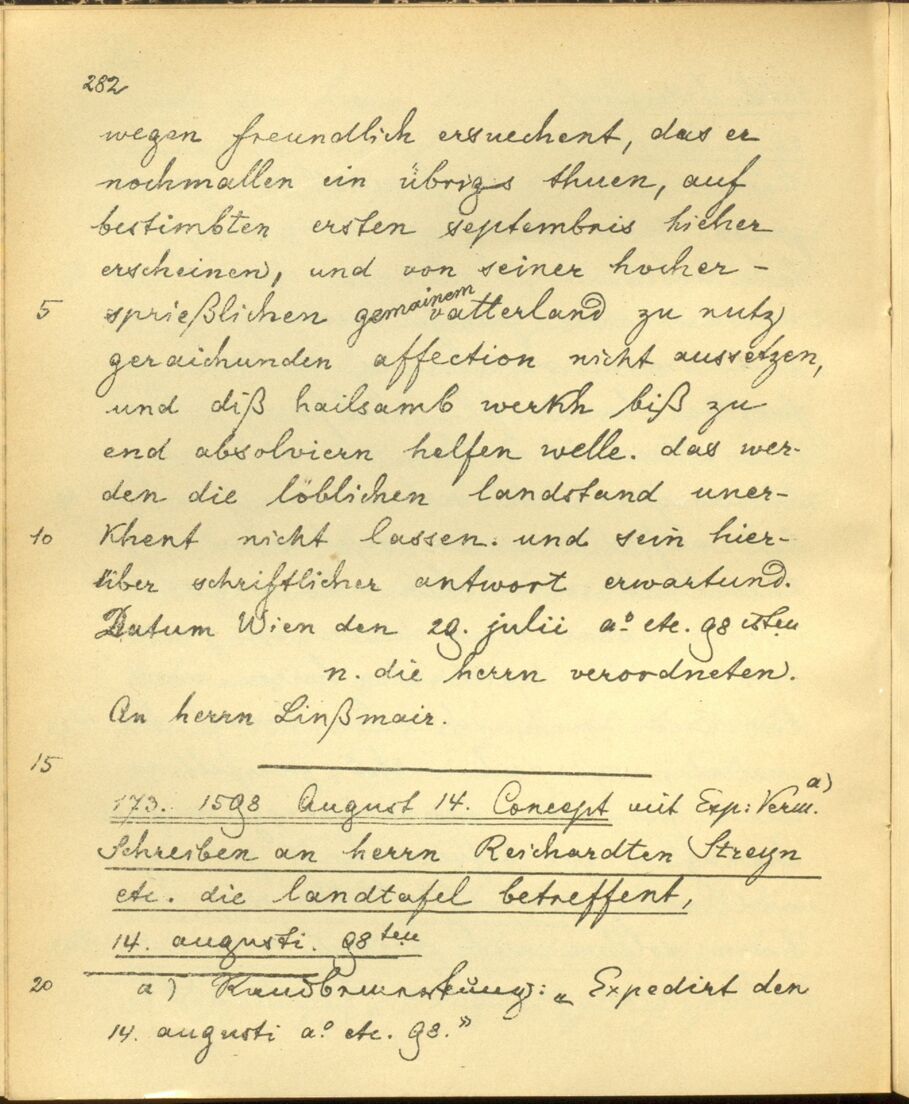 282
wegen freundlich ersuechent, das er
nochmallen ein übrigs thuen, auf
bestimbten ersten septembris hieher
erscheinen, und von seiner hocher-
5 sprießlichen gemainem vatterland zu nutz
geraichunden affection nicht aussetzen,
und diß hailsamb werkh biß zu
end absolviern helfen welle. das wer-
den die löblichen landstand uner-
10 khent nicht lassen. und sein hier-
über schriftlicher antwort erwartund.
Datum Wien den 29. julii aº etc. 98isten
n. die herrn verordneten.
An herrn Linßmair.
15
173. 1598 August 14. Concept mit Exp: Verm. a)
Schreiben an herrn Reichardten Streyn
etc. die landtafel betreffent,
14. augusti. 98ten
20 a) Randbemerkung: „Expedirt den
14. augusti aº etc. 98."